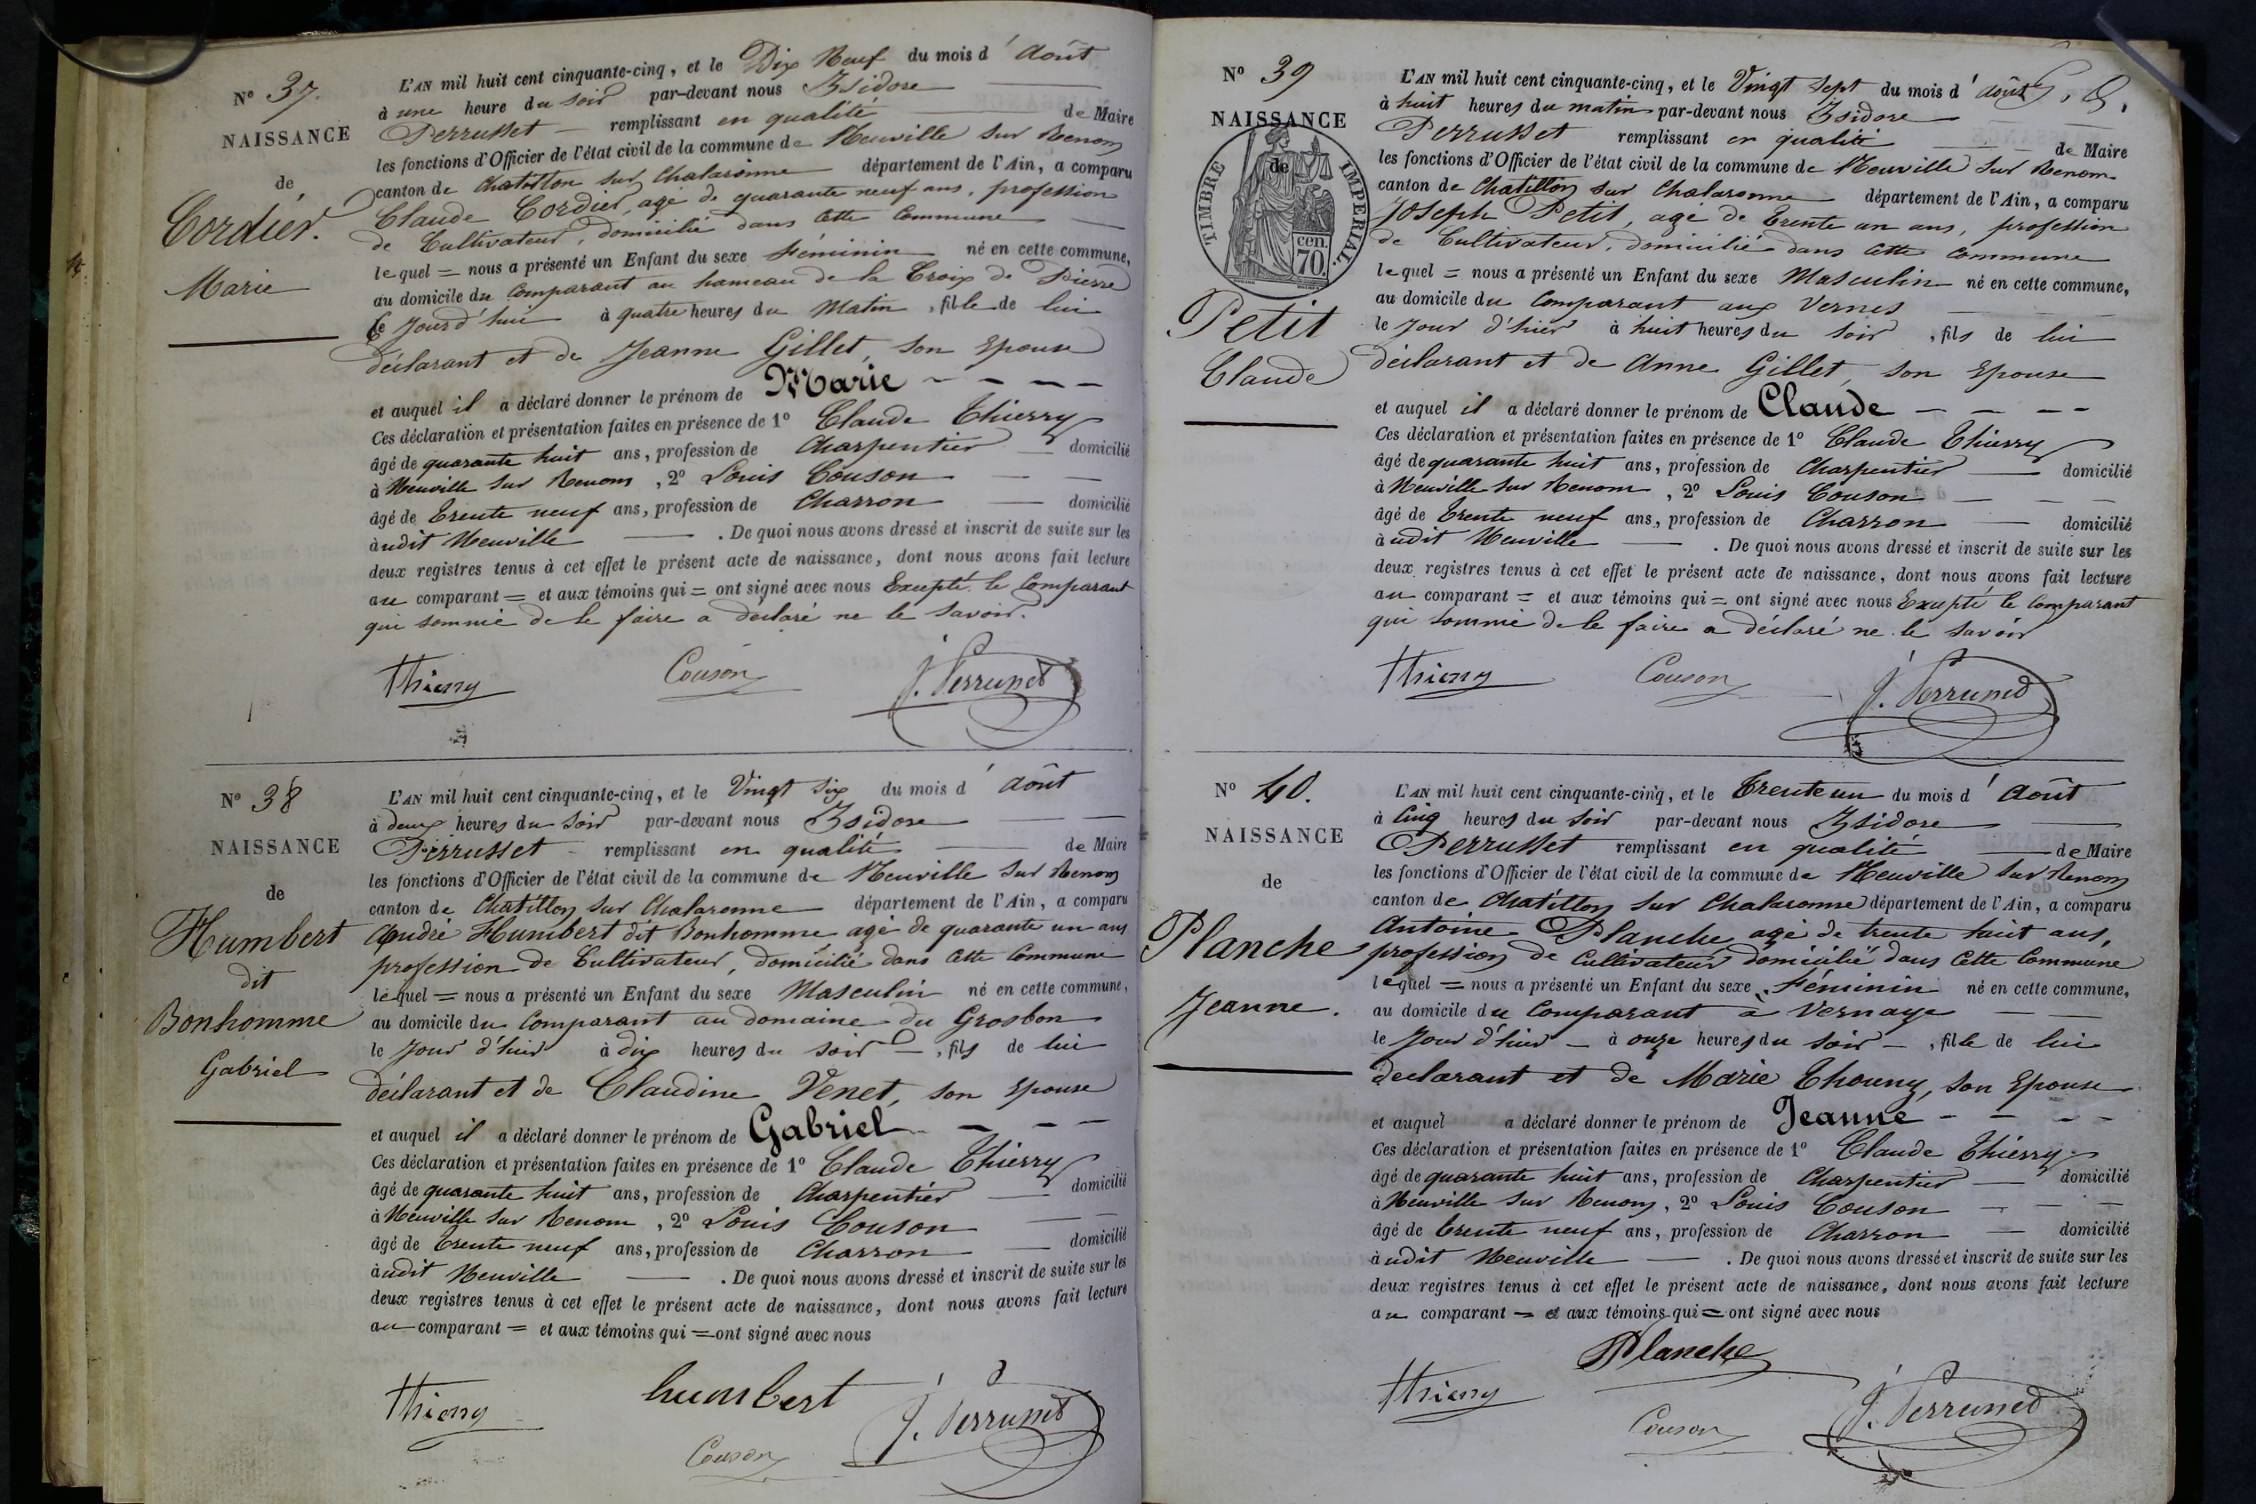 Nº 37.
NAISSANCE
de
Cordier.
Marie
L'AN mil huit cent cinquante-cinq, et le Dix Neuf du mois d' Août
à une heure du soir par-devant nous Isidore
Perrusset remplissant en qualité de Maire
les fonctions d'Officier de l'état civil de la commune de Neuville sur Renom
canton de Chatillon sur Chalaronne département de l'Ain, a comparu
Claude Cordier, agé de quarante neuf ans, profession
de Cultivateur, domicilié dans cette Commune
lequel = nous a présenté un Enfant du sexe Féminin né en cette commune,
au domicile du Comparant au hameau de la Croix de Pierre
le Jour d'hui à quatre heures du Matin, fille de lui
déclarant et de Jeanne Gillet, son Epouse
et auquel il a déclaré donner le prénom de Marie
Ces déclaration et présentation faites en présence de 1º Claude Thierry
âgé de quarante huit ans, profession de Charpentier domicilié
à Neuville sur Renom, 2º Louis Couson
âgé de trente neuf ans, profession de Charron domicilié
àudit Neuville. De quoi nous avons dressé et inscrit de suite sur les
deux registres tenus à cet effet le présent acte de naissance, dont nous avons fait lecture
au comparant = et aux témoins qui = ont signé avec nous Excepté le Comparant
qui sommé de le faire a déclaré ne le savoir.
Thierry Couson J. Perrusset
Nº 38
NAISSANCE
de
Humbert
dit
Bonhomme
Gabriel
L'AN mil huit cent cinquante-cinq, et le Vingt Six du mois d' Août
à deux heures du Soir par-devant nous Isidore
Perrusset remplissant en qualité de Maire
les fonctions d'Officier de l'état civil de la commune de Neuville sur Renom
canton de Chatillon sur Chalaronne département de l'Ain, a comparu
André Humbert dit Bonhomme agé de quarante un ans
profession de Cultivateur, domicilié dans cette Commune
lequel = nous a présenté un Enfant du sexe Masculin né en cette commune,
au domicile du Comparant au domaine du Grosbon
le Jour d'hier à dix heures du soir, fils de lui
déclarant et de Claudine Venet, son Epouse
et auquel il a déclaré donner le prénom de Gabriel
Ces déclaration et présentation faites en présence de 1º Claude Thierry
âgé de quarante huit ans, profession de Charpentier domicilié
à Neuville sur Renom, 2º Louis Couson
âgé de trente neuf ans, profession de Charron domicilié
àudit Neuville. De quoi nous avons dressé et inscrit de suite sur les
deux registres tenus à cet effet le présent acte de naissance, dont nous avons fait lecture
au comparant = et aux témoins qui = ont signé avec nous
Thierry humbert J. Perrusset
Couson
Nº 39
NAISSANCE
de
TIMBRE IMPERIAL.
cen.
70.
Petit
Claude
L'AN mil huit cent cinquante-cinq, et le Vingt Sept du mois d' Août
à huit heures du matin par-devant nous Isidore
Perrusset remplissant en qualité de Maire
les fonctions d'Officier de l'état civil de la commune de Neuville sur Renom
canton de Chatillon sur Chalaronne département de l'Ain, a comparu
Joseph Petit, agé de trente un ans, profession
de Cultivateur, domicilié dans cette Commune
lequel = nous a présenté un Enfant du sexe Masculin né en cette commune,
au domicile du Comparant aux Vernes
le Jour d'hier à huit heures du soir, fils de lui
déclarant et de Anne Gillet, son Epouse
et auquel il a déclaré donner le prénom de Claude
Ces déclaration et présentation faites en présence de 1º Claude Thierry
âgé de quarante huit ans, profession de Charpentier domicilié
à Neuville sur Renom, 2º Louis Couson
âgé de trente neuf ans, profession de Charron domicilié
àudit Neuville. De quoi nous avons dressé et inscrit de suite sur les
deux registres tenus à cet effet le présent acte de naissance, dont nous avons fait lecture
au comparant = et aux témoins qui = ont signé avec nous Excepté le Comparant
qui sommé de le faire a déclaré ne le savoir
Thierry Couson J. Perrusset
Nº 40.
NAISSANCE
de
Planche
Jeanne.
L'AN mil huit cent cinquante-cinq, et le Trente un du mois d' Août
à Cinq heures du Soir par-devant nous Isidore
Perrusset remplissant en qualité de Maire
les fonctions d'Officier de l'état civil de la commune de Neuville sur Renom
canton de Chatillon sur Chalaronne département de l'Ain, a comparu
Antoine Planche agé de trente huit ans,
profession de Cultivateur domicilié dans Cette Commune
lequel = nous a présenté un Enfant du sexe Féminin né en cette commune,
au domicile du Comparant à Vernaye
le Jour d'hier à onze heures du soir, fille de lui
declarant et de Marie Thouny, son Epouse
et auquel a déclaré donner le prénom de Jeanne
Ces déclaration et présentation faites en présence de 1º Claude Thierry
âgé de quarante huit ans, profession de Charpentier domicilié
à Neuville sur Renom, 2º Louis Couson
âgé de trente neuf ans, profession de Charron domicilié
àudit Neuville. De quoi nous avons dressé et inscrit de suite sur les
deux registres tenus à cet effet le présent acte de naissance, dont nous avons fait lecture
au comparant = et aux témoins qui = ont signé avec nous
Planche
Thierry Couson J. Perrusset